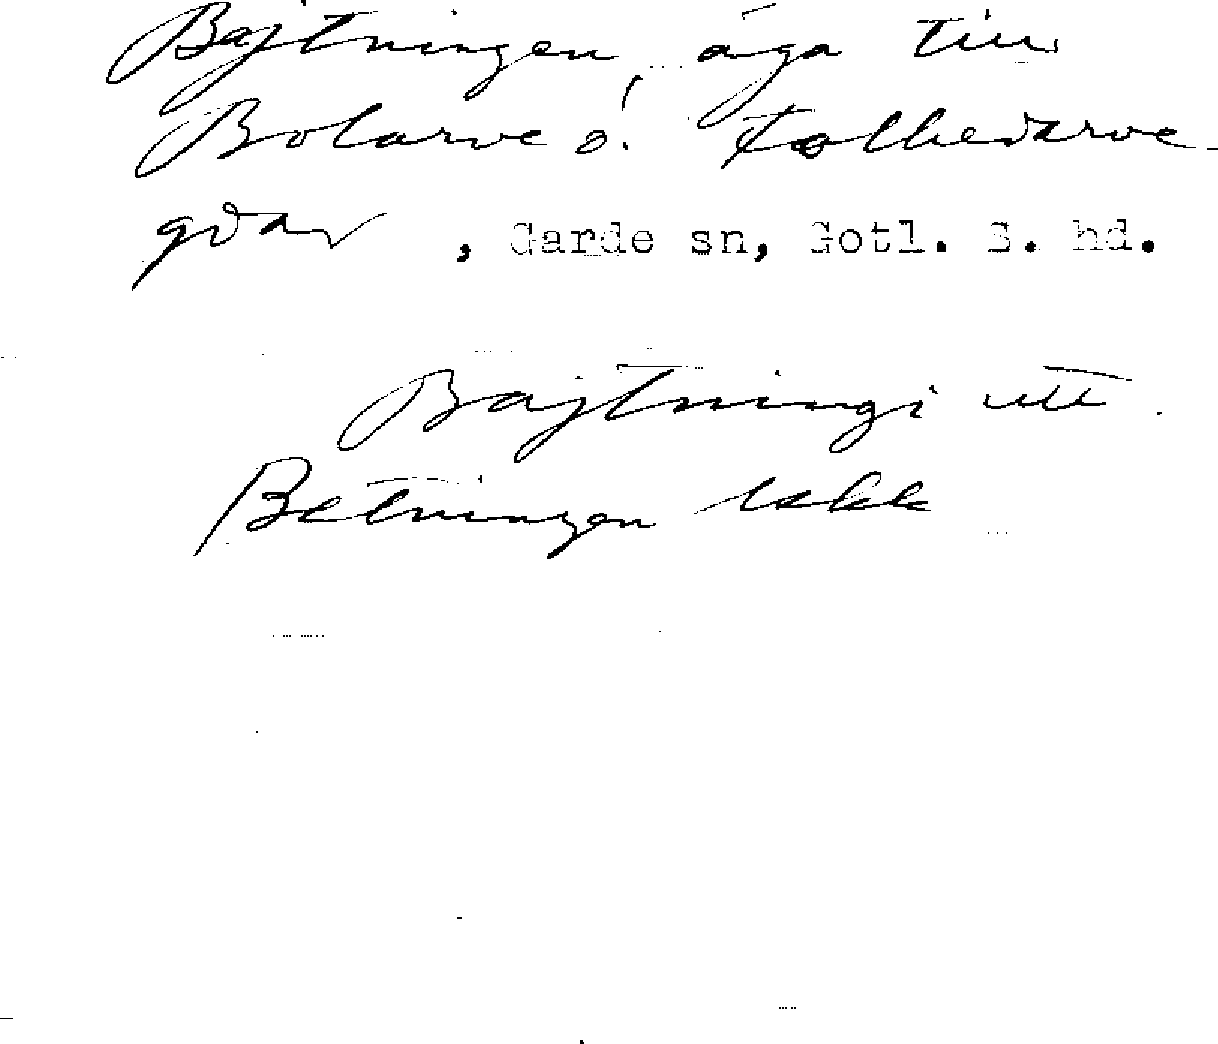 Bajtningen, äga till
Bolarve o. Folhedarve
gdar, Garde sn, Gotl. S. hd.
Bajtningi utt.
Betningen